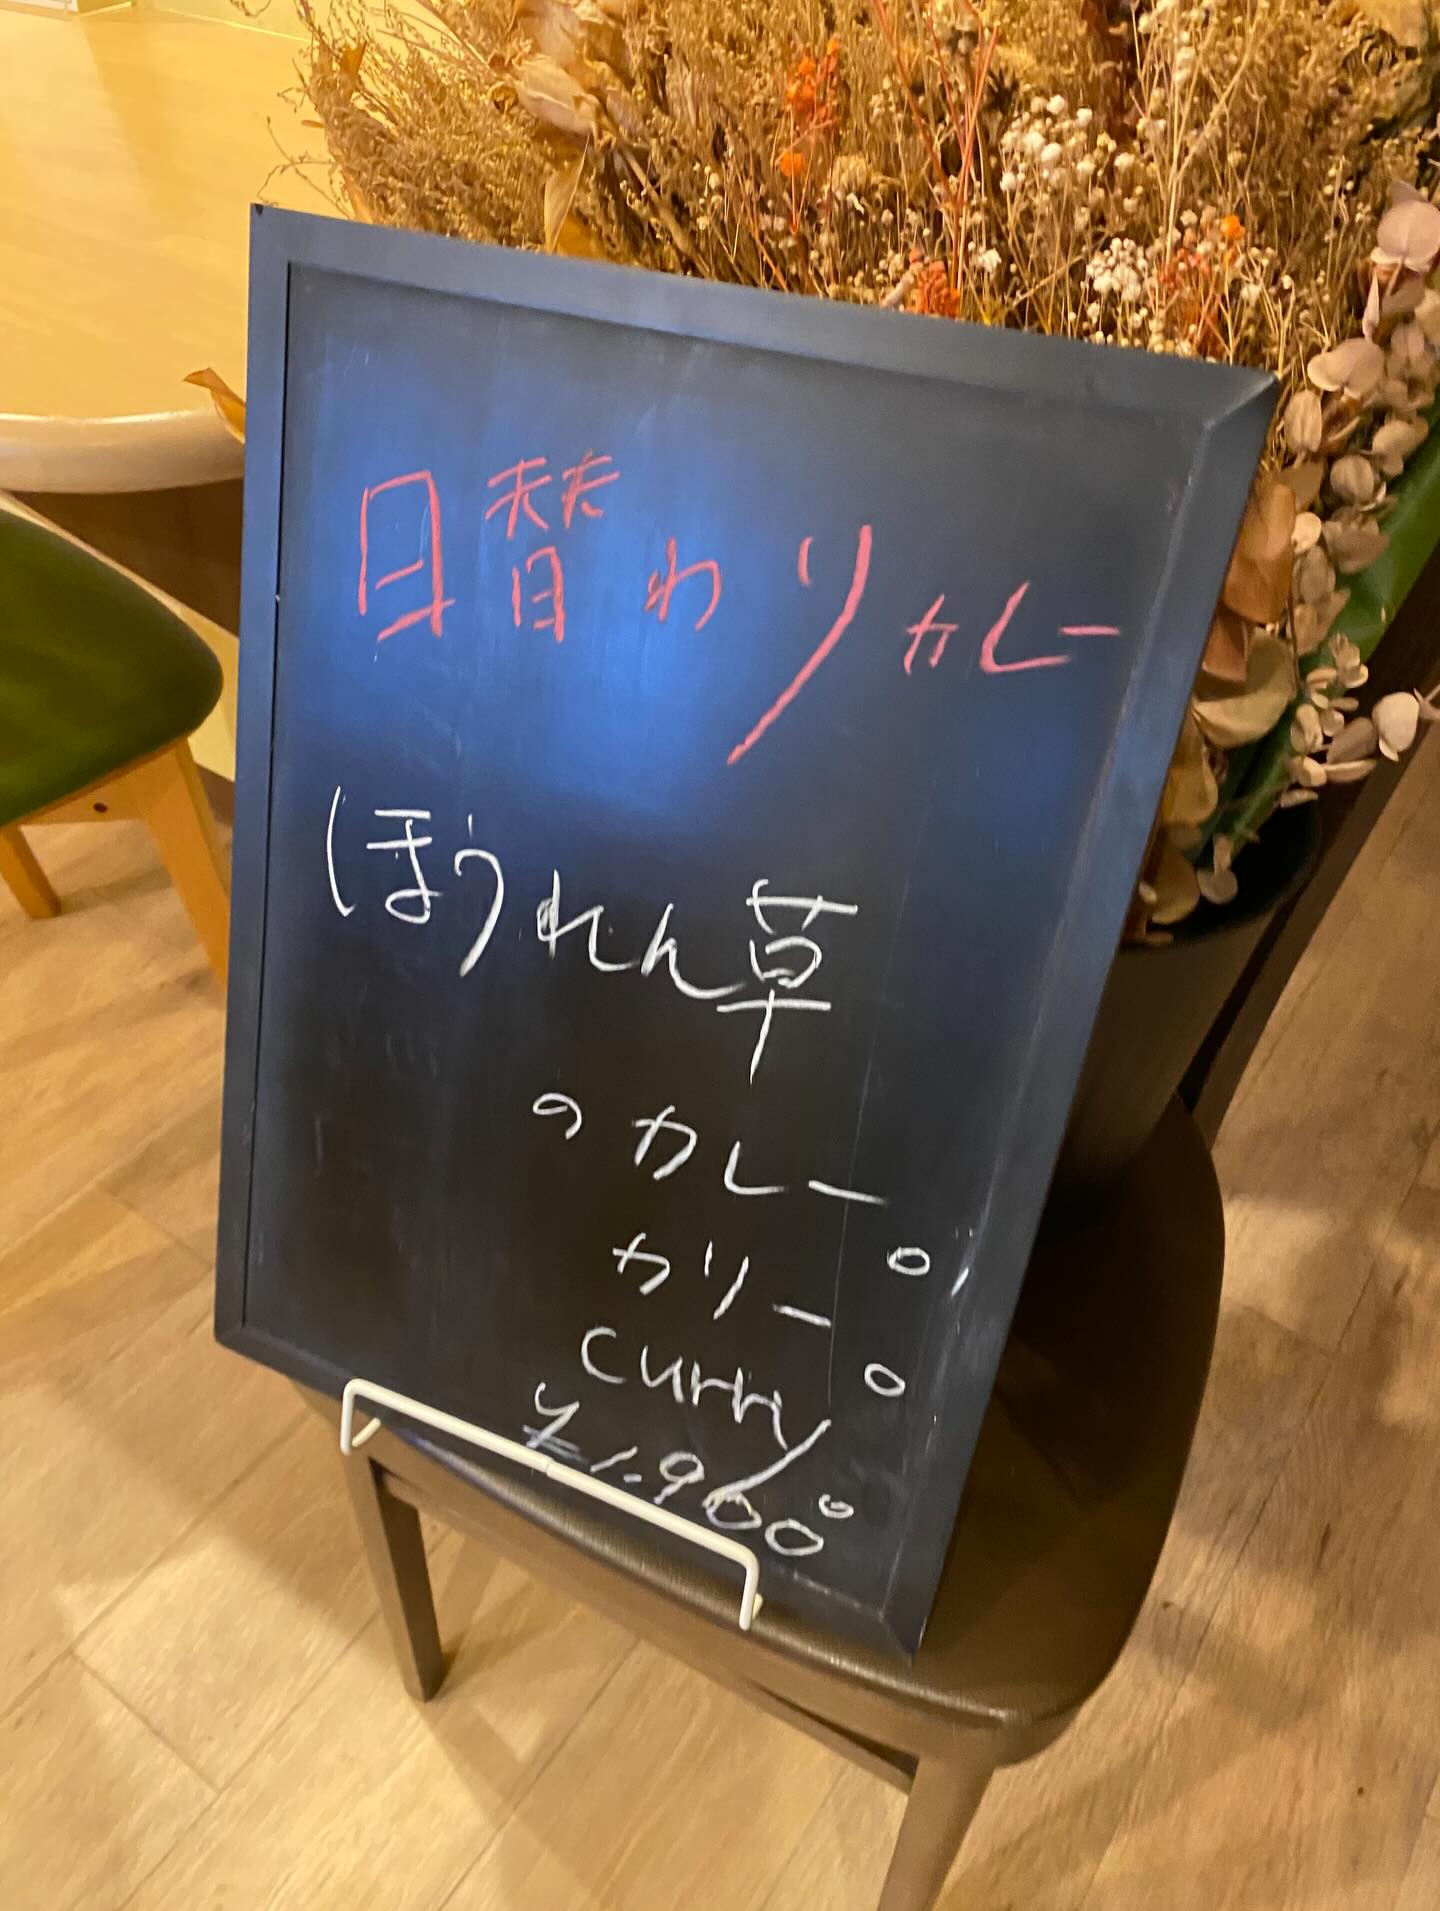 日替わりカレー
ほうれん草
のカレー。
カリー。
curry。
¥1.960